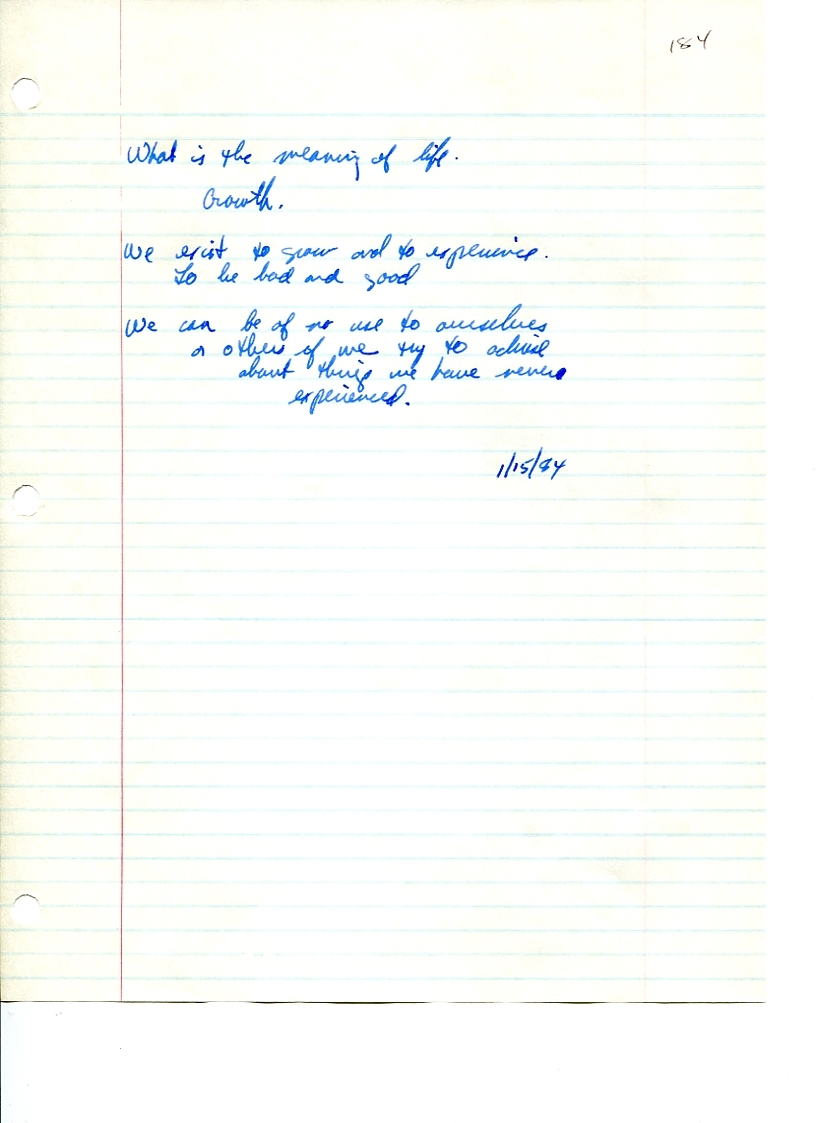 184
What is the meaning of life.
Growth.
We exist to grow and to experience.
To be bad and good
We can be of no use to ourselves
or others if we try to advise
about things we have never
experienced.
1/15/84